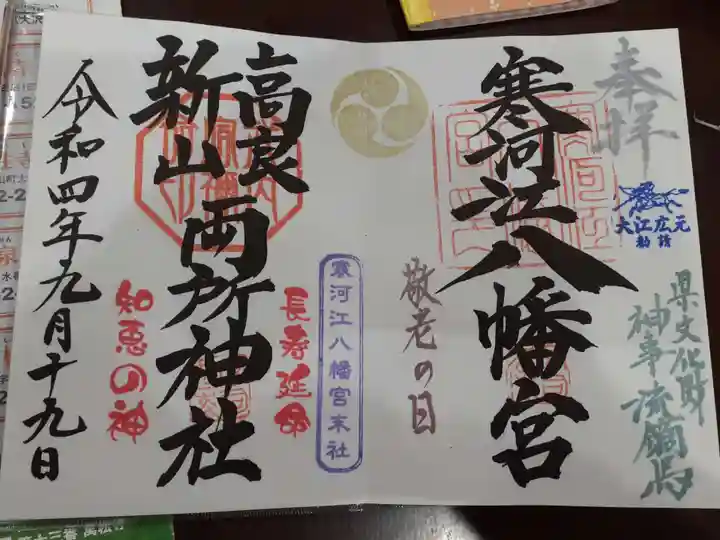 奉拝
大江広元
勧請
県文化財
神事流鏑馬
寒河江八幡宮
敬老の日
寒河江八幡宮末社
長寿延命
高良
新山
両所神社
知恵の神
令和四年九月十九日